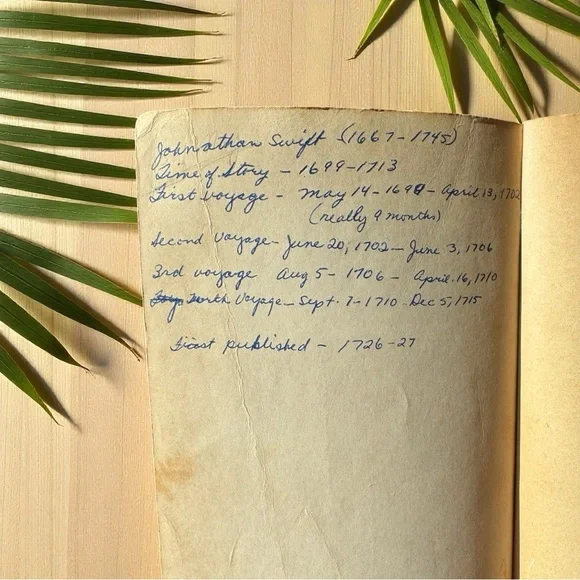 Johnathan Swift (1667-1745)
Time of Story - 1699-1713
First voyage - May 14-1699 - April 13, 1702
(really 9 months)
Second Voyage - June 20, 1702 - June 3, 1706
3rd voyage Aug 5 - 1706 - April. 16, 1710
Voyage - Sept. 7 - 1710 - Dec 5, 1715
First published - 1726-27